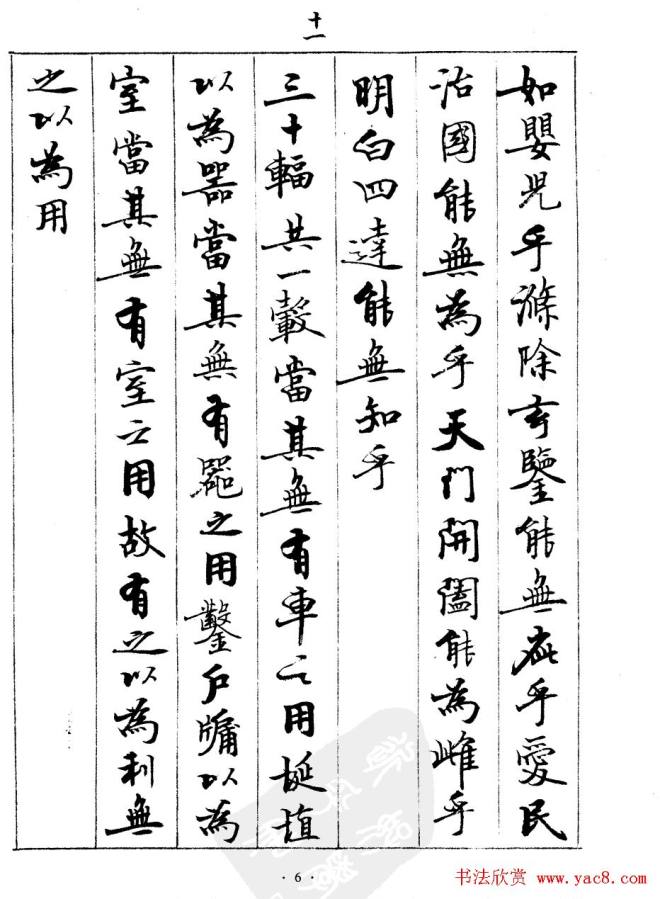 十一
如嬰兒乎滌除玄鑒能無疵乎愛民
治國能無為乎天門開闔能為雌乎
明白四達能無知乎
三十輻共一轂當其無有車之用埏埴
以為器當其無有器之用鑿戶牖以為
室當其無有室之用故有之以為利無
之以為用
·6·
书法欣赏 www.yac8.com